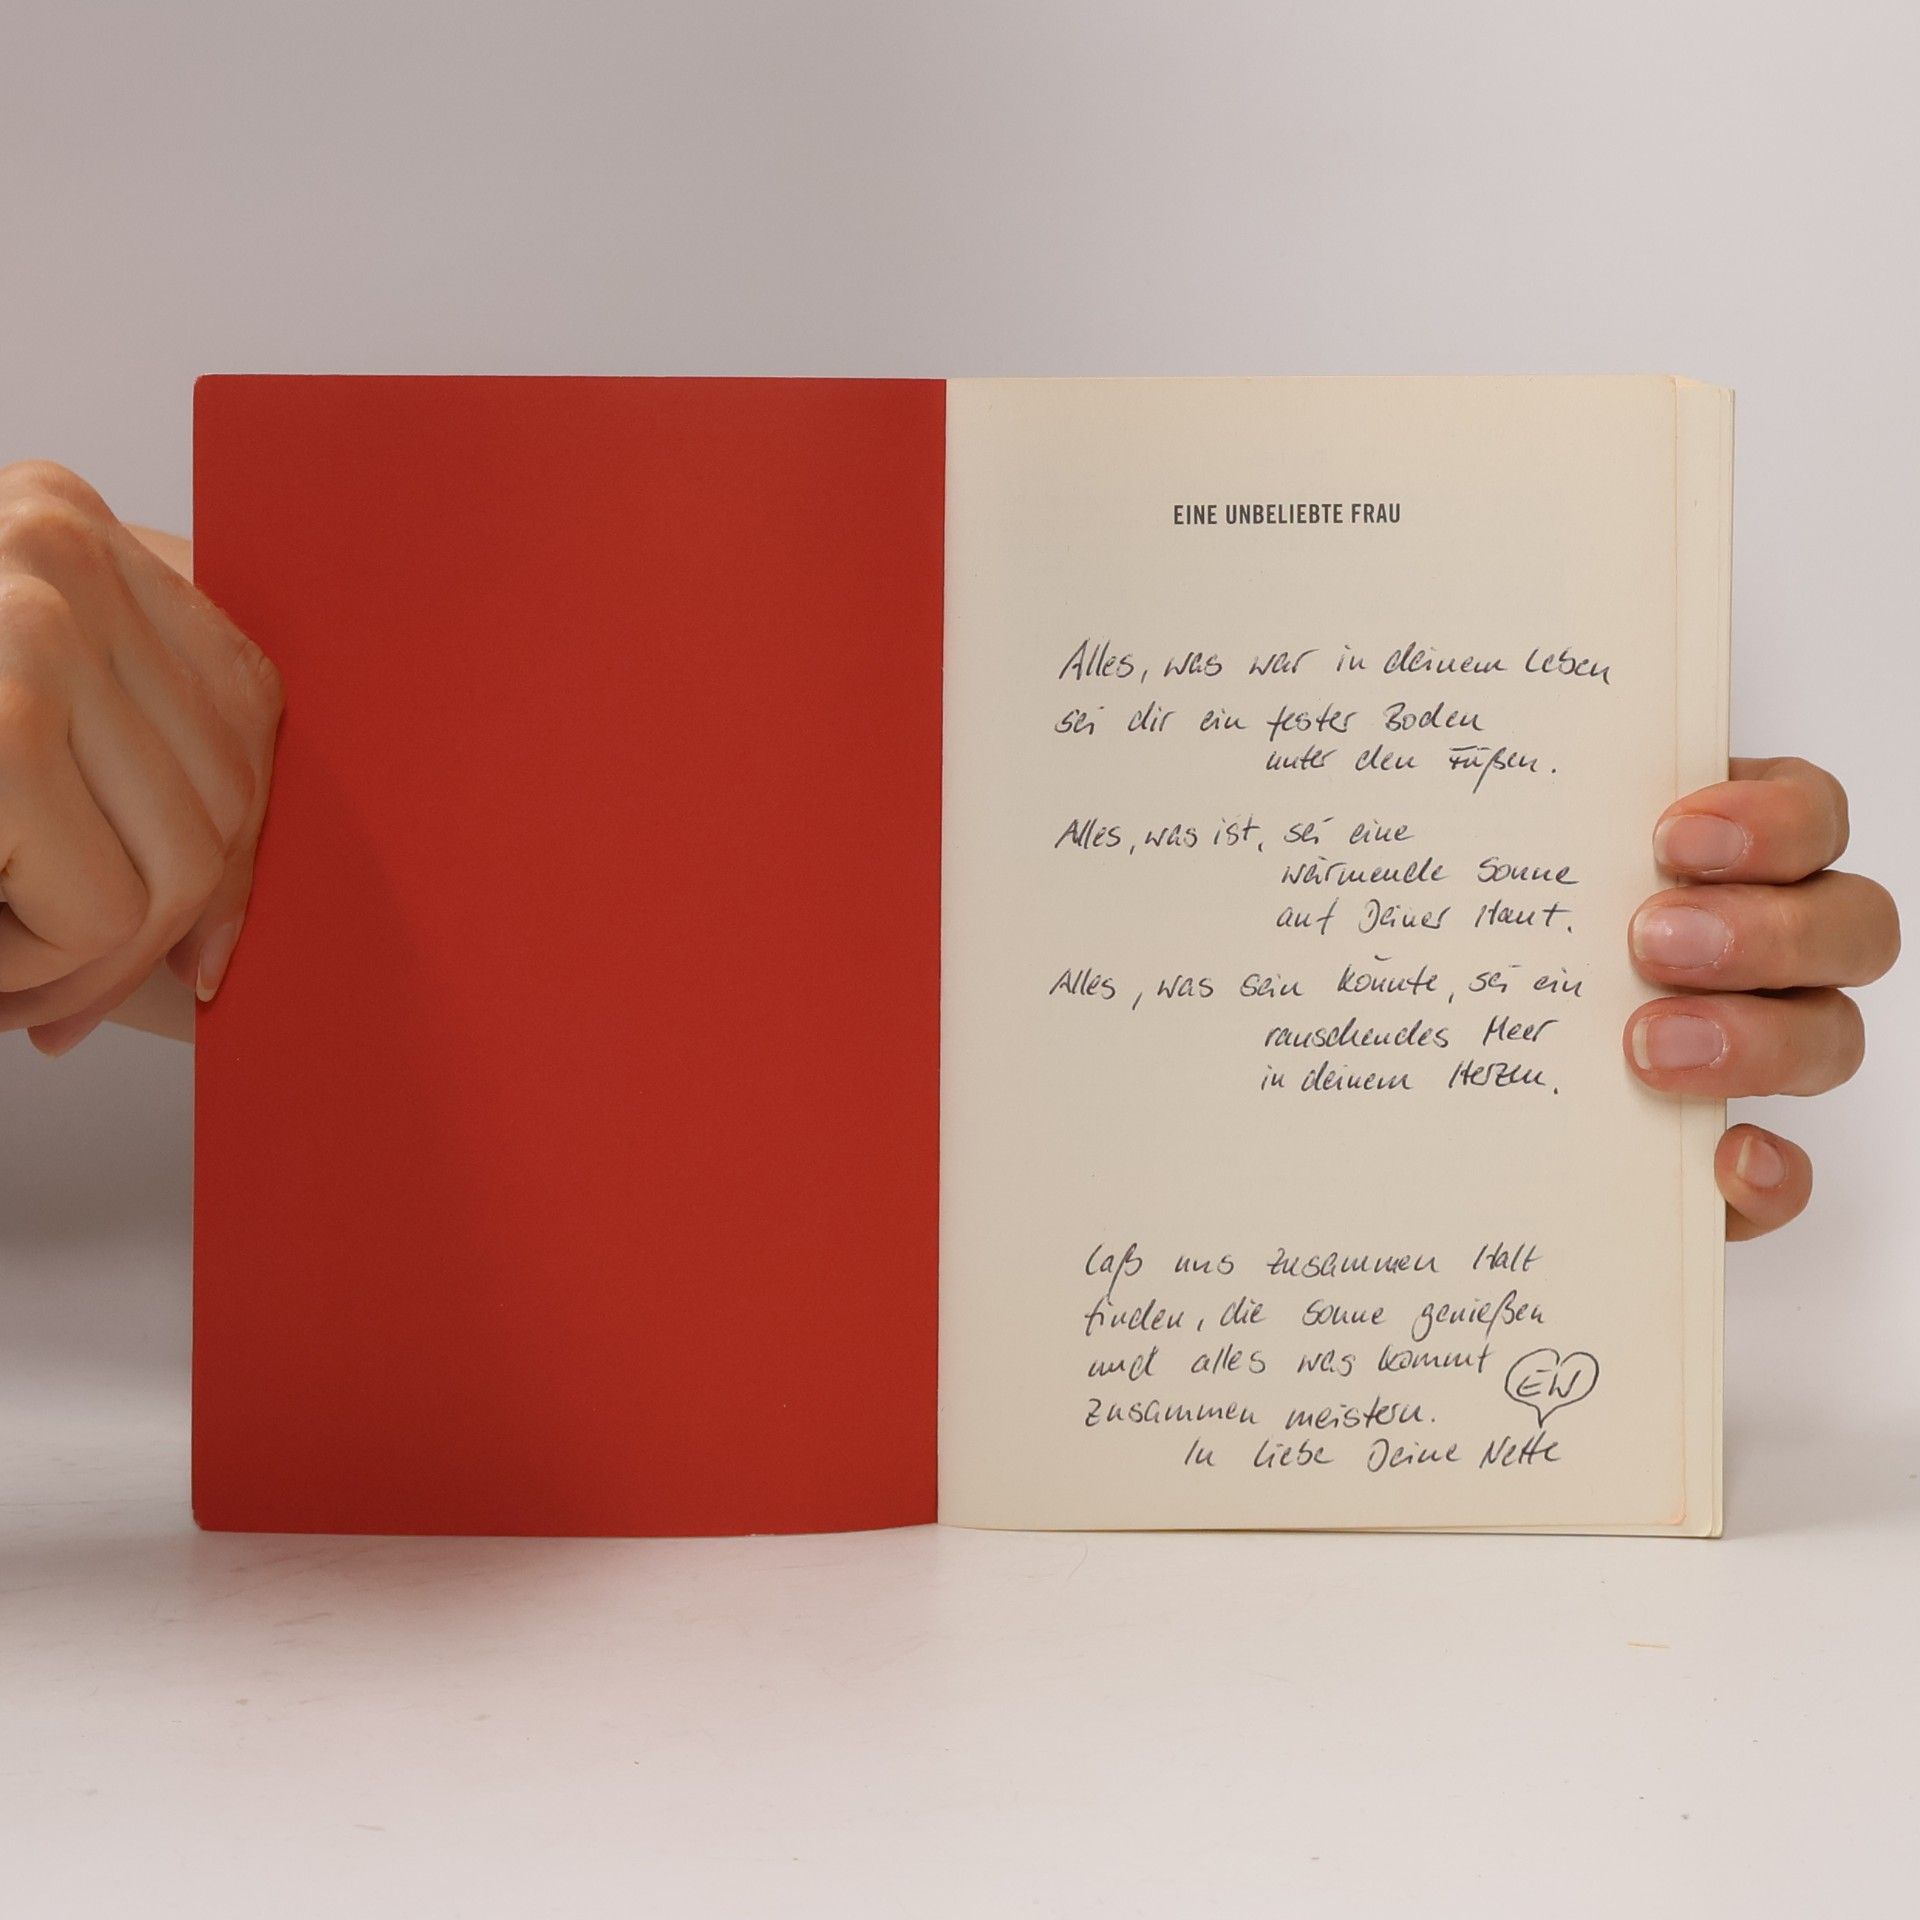 EINE UNBELIEBTE FRAU
Alles, was war in deinem Leben
sei dir ein fester Boden
unter den Füßen.
Alles, was ist, sei eine
wärmende Sonne
auf Deiner Haut.
Alles, was sein könnte, sei ein
rauschendes Meer
in deinem Herzen.
Laß uns zusammen Halt
finden, die Sonne genießen
und alles was kommt
EW
zusammen meistern.
In Liebe Deine Nette